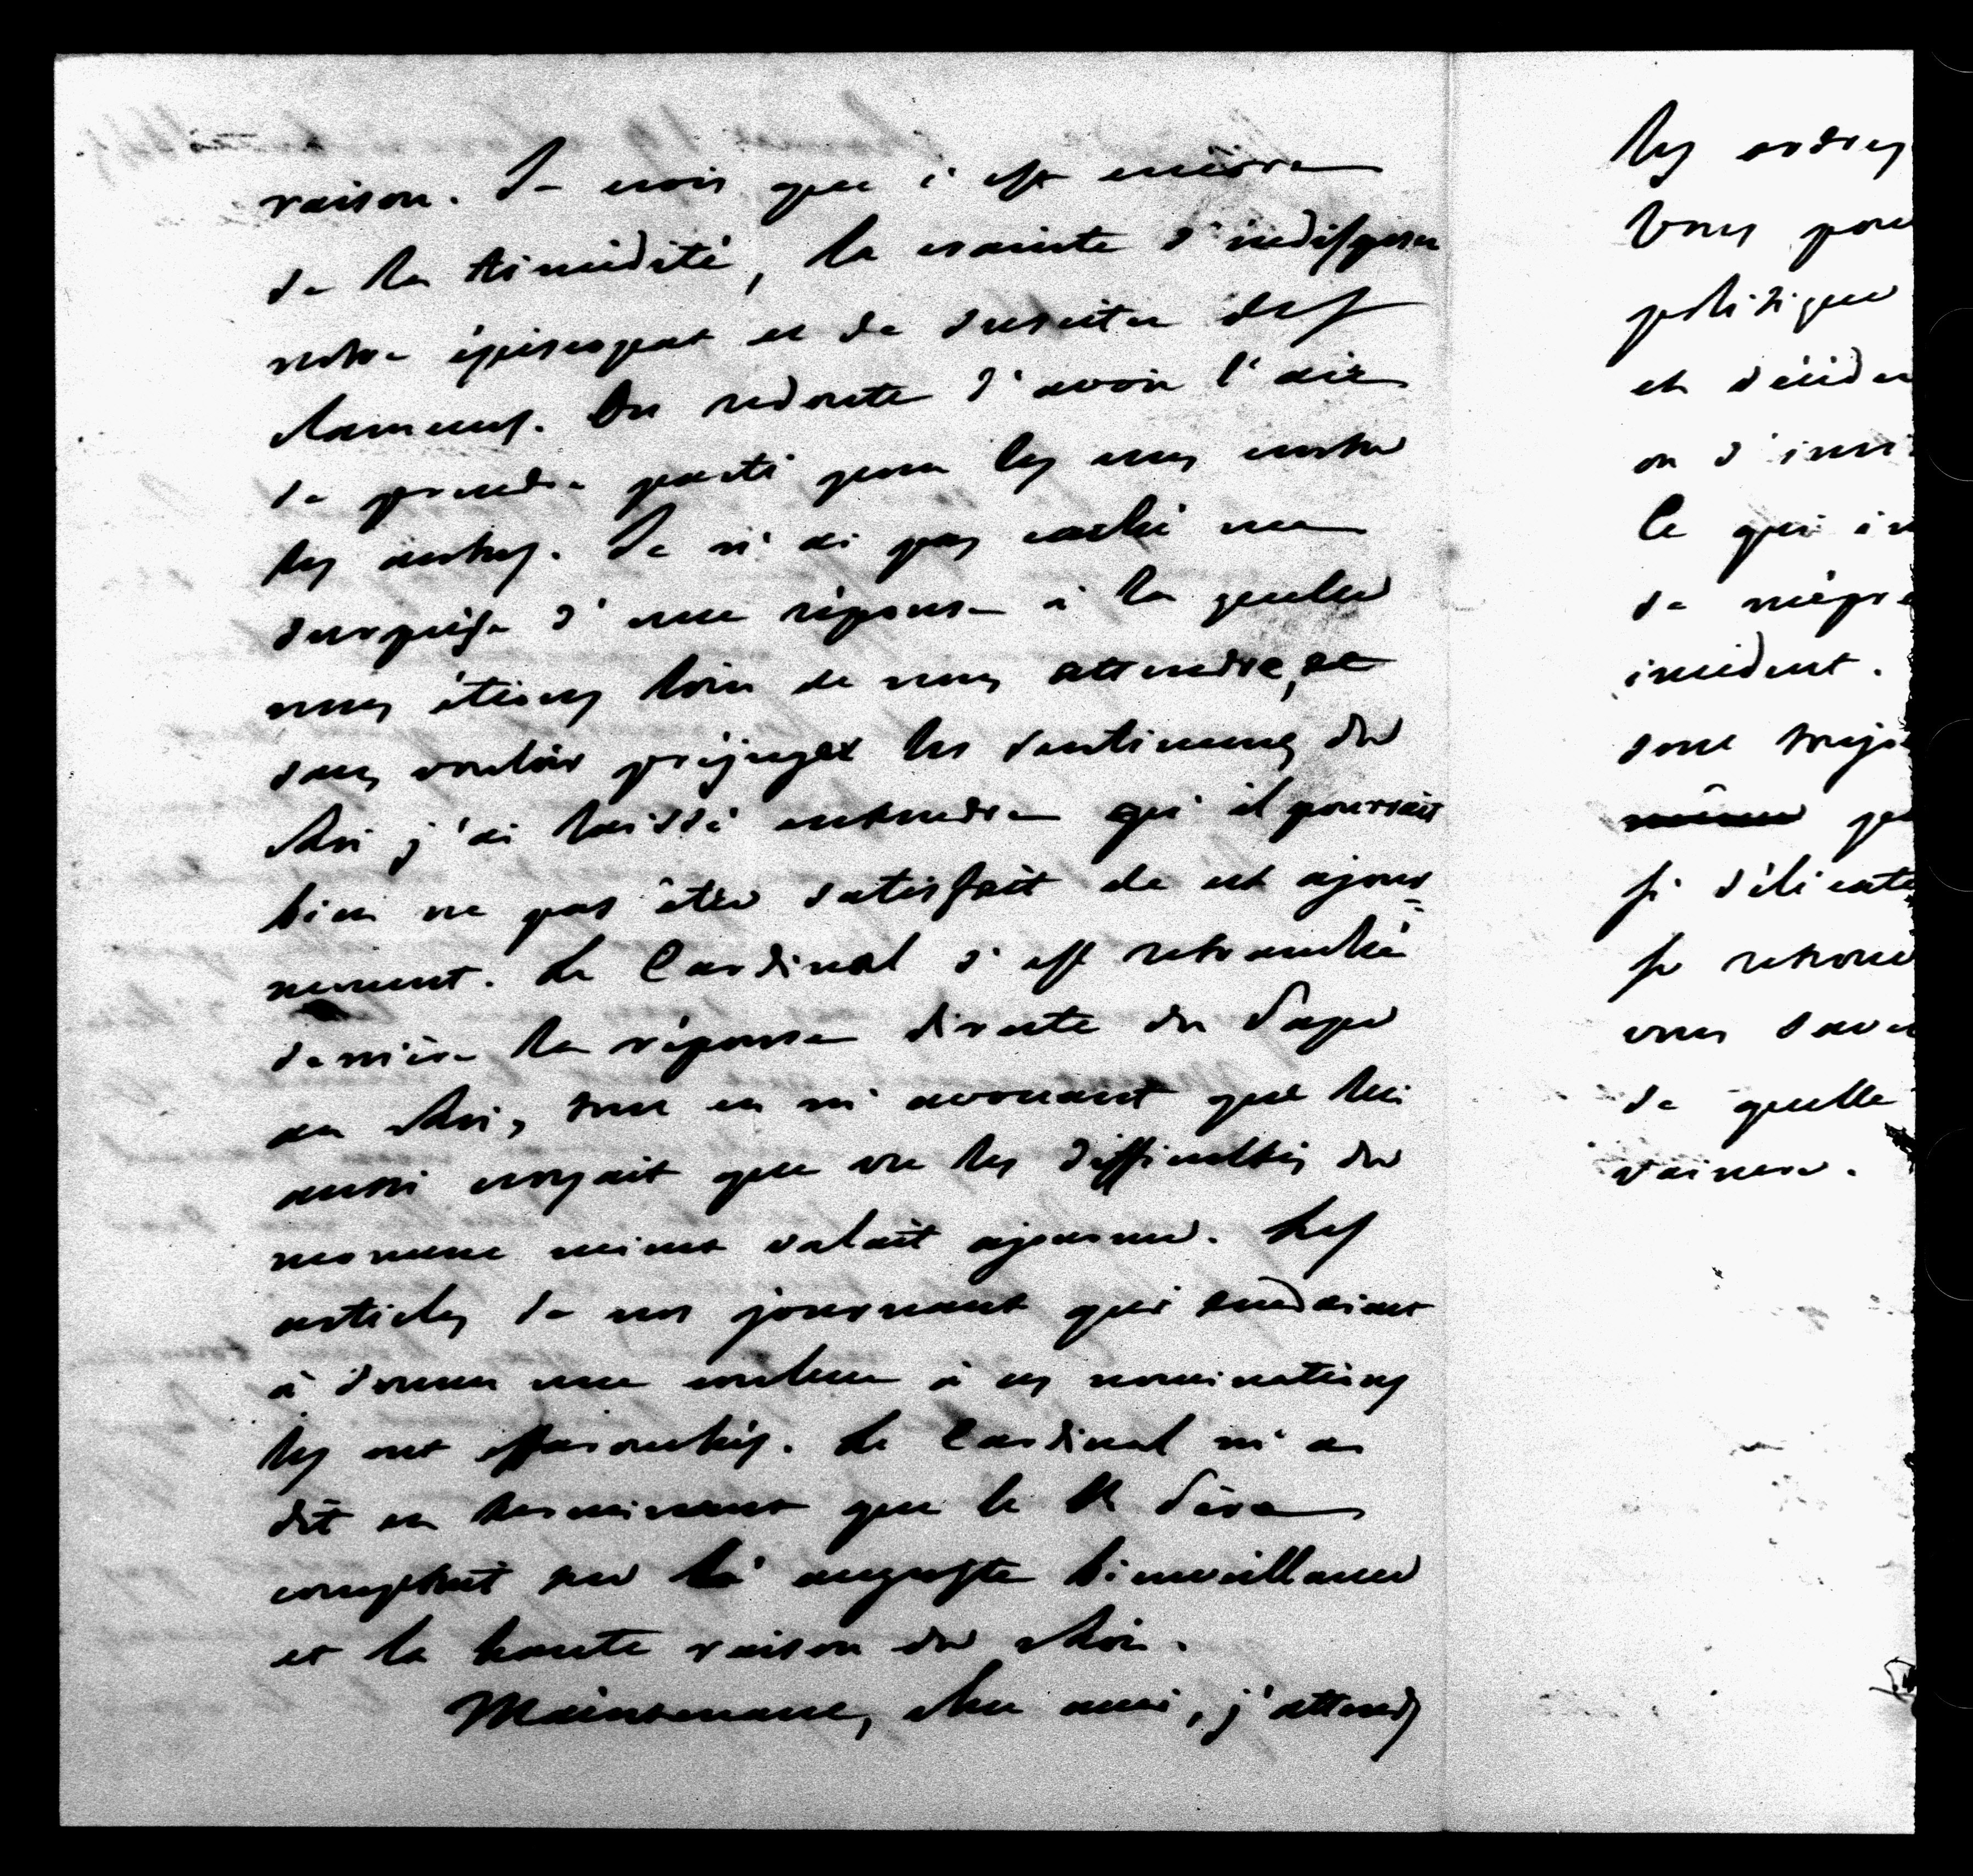 raison. Je crois que c'est encore
de la timidité, la crainte d'indisposer
notre épiscopat et de susciter des
clameurs. On redoute d'avoir l'air
de prendre parti pour les uns contre
les autres. Je n'ai pas caché ma
surprise d'une réponse à laquelle
nous étions loin de nous attendre, et
sans vouloir préjuger les sentimens du
Roi j'ai laissé entendre qu'il pourrait
bien ne pas être satisfait de cet ajour=
nement. Le Cardinal s'est retranché
derrière la réponse directe du Pape
au Roi, tout en m'avouant que lui
aussi croyait que vu les difficultés du
moment mieux valait ajourner. Les
articles de nos journaux qui tendaient
à donner une couleur à ces nominations
les ont effarouchés. Le Cardinal m'a
dit en terminant que le St Père
comptait sur la auguste bienveillance
et la haute raison du Roi.
Maintenant, cher ami, j'attends
les ordres
Vous pou
politique
et décider
ou d'insi
Ce qui im
de mépr
incident.
sont toujo
même pe
si délicate
se retrouv
vous save
de quelle
vaincre.